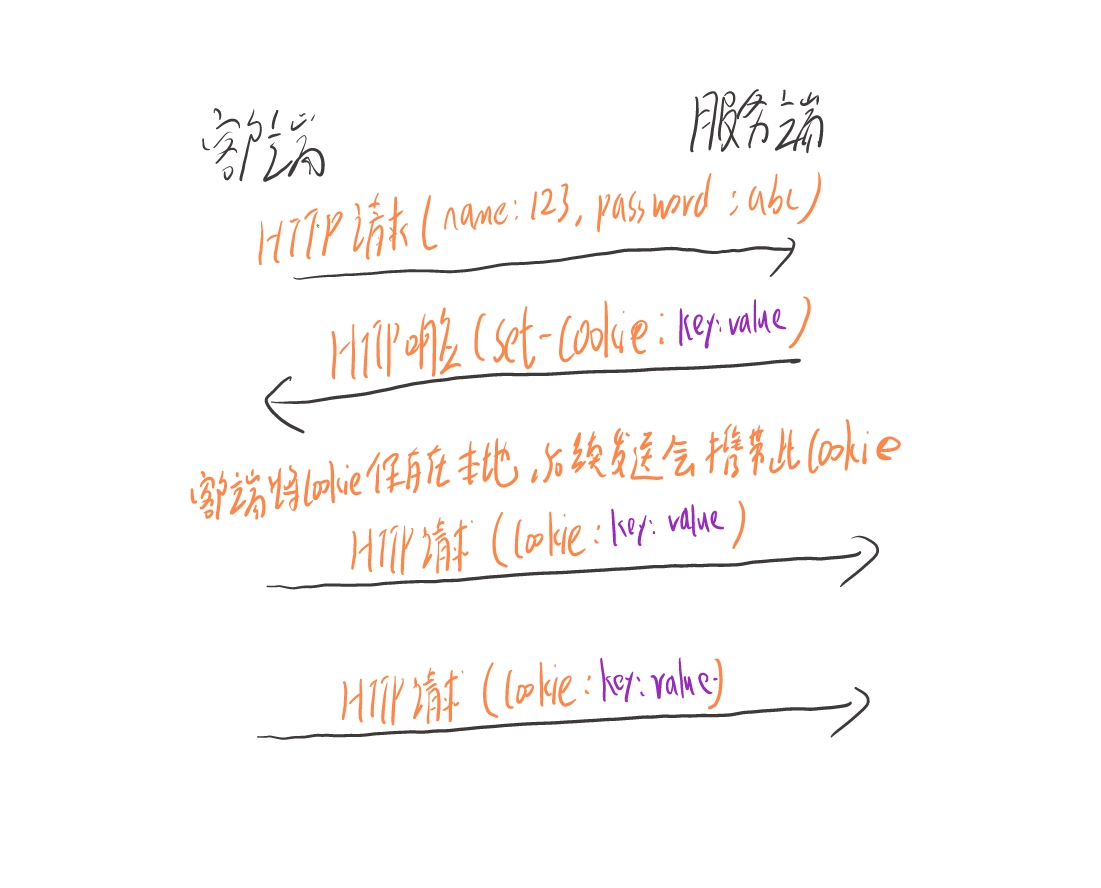 客户端 服务端
HTTP请求(name:123, password:abc)
HTTP响应(set-cookie:key:value)
客户端将cookie保存在本地,后续发送会携带此cookie
HTTP请求(cookie:key:value)
HTTP请求(cookie:key:value)